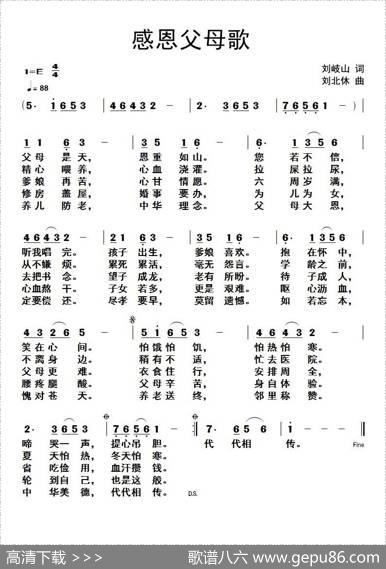 感恩父母歌
1=E 4/4
刘岐山 词
♩=88
刘北休 曲
(5· 1653 | 46432 - | 2· 3653 | 176561 - )
1 1 6· 3 | 35 16 - | 6· 1 35 | 2 - - -
父 母 是 天， 恩 重 如 山。 您 若 不 信，
精 心 喂 养， 心 血 浇 灌。 拉 屎 拉 尿，
爹 娘 再 苦， 心 甘 情 愿。 六 周 岁 满，
修 房 盖 屋， 婚 事 要 办， 为 儿 为 女，
养 儿 防 老， 中 华 理 念。 父 母 大 恩，
46432 - | 2· 3 21 | 35 16 - | 6· 1354
听我唱 完。 孩子 出生， 爹娘 喜欢。 抱 在怀 中，
从不嫌 烦。 累死 累活， 毫无 怨言。 学 龄之 前，
去把书 念。 望子 成龙， 老有 所盼。 待 子成 人，
心血熬 干。 子女 若多， 更是 艰难。 呕 心沥 血，
定要偿 还。 尽孝 要早， 莫留 遗憾。 如 若忘 本，
43 26 5 - | 51653 - | 46432 -
笑 在 心 间。 怕饿怕 饥， 怕热怕 寒。
不 离 身 边。 稍有不 适， 忙去医 院。
父 母 更 难。 衣食住 行， 安排周 全，
腰 疼 腿 酸。 父母辛 苦， 身自体 验。
愧 对 苍 天。 养老送 终， 邻里称 赞。
2· 3653 | 176561 - :| 7· 6 56 | 1 - - - ||
啼 哭一 声， 提心吊 胆。 代 代相 传。 Fine
夏 天怕 热， 冬天怕 寒。
省 吃俭 用， 血汗攒 钱。
轮 到自 己， 也是这 般。
中 华美 德， 代代相 传。 D.S.
高清下载 >>>
歌谱八六 www.gepu86.com